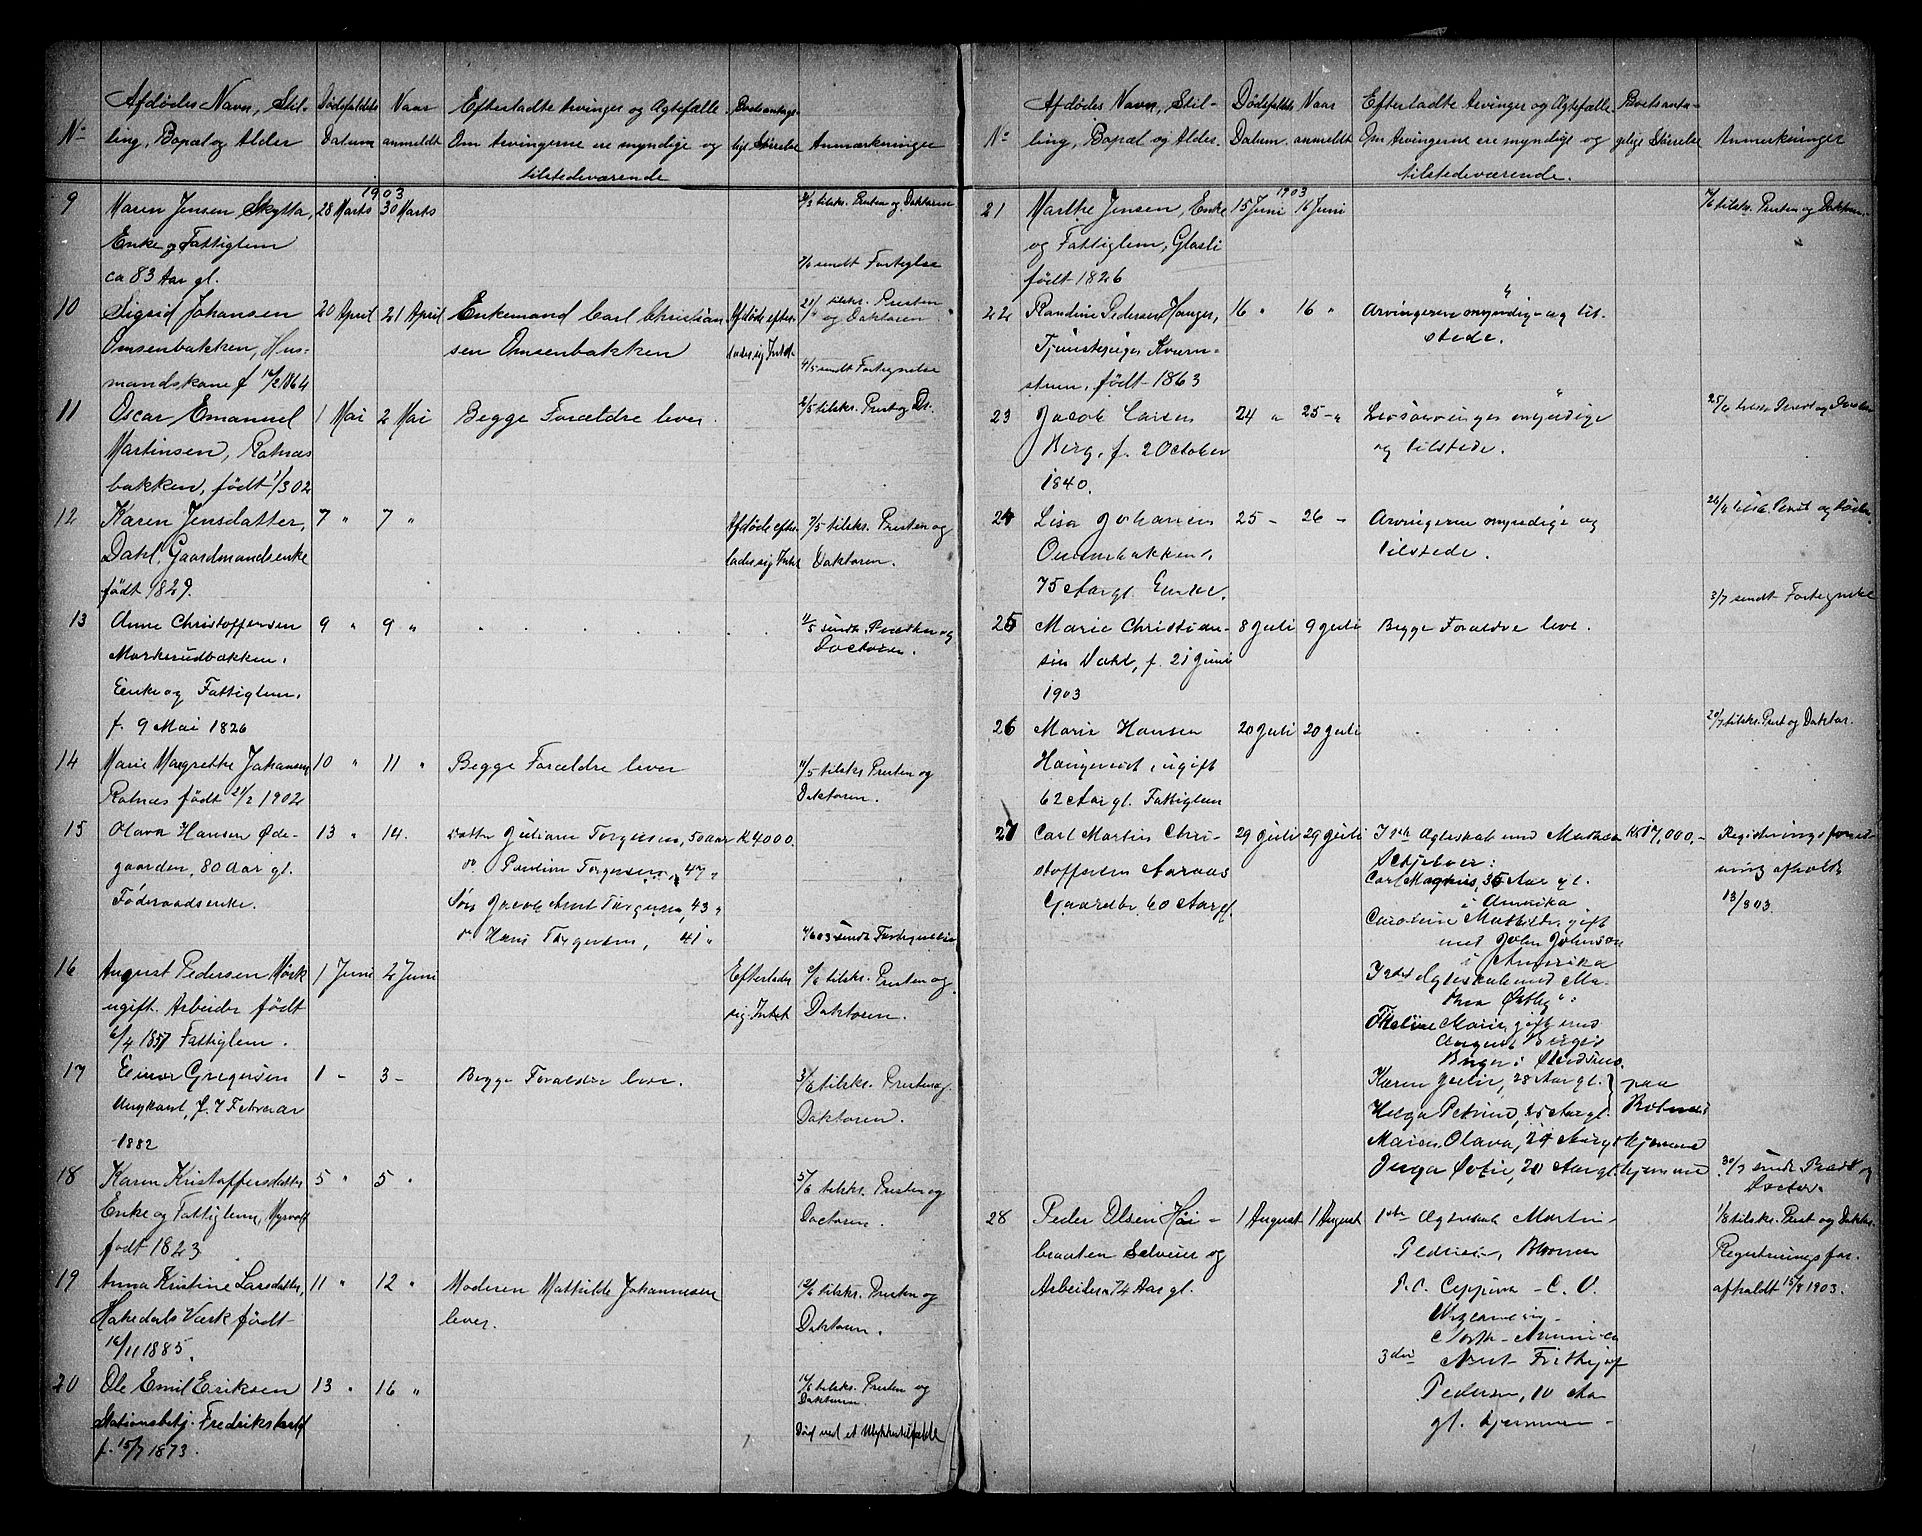 Afdødes Navn, Stil- Dødsfaldets Naar Efterladte Arvinger og Agtefælle Boets antage-
No ling, Bopæl og Alder Datum anmeldt Om Arvingerne ere myndige og lige Størrelse Anmærkninger
tilstedeværende
1903
9 Maren Jensen, Skytta, 28 Marts 30 Marts tilskr. Presten og Doktoren
Enke og Fattiglem
ca 83 Aar gl. sendt Fortegnelse
10 Sigrid Johansen 20 April 21 April Enkemand Carl Christian Afdøde efter- tilskr. Presten
og Doktoren.
Omsenbakken, Hus- sen Omsenbakken lader sig Intet
mandskone f 1864 4/5 sendt Fortegnelse
11 Oscar Emanuel 1 Mai 2 Mai Begge Forældre lever. 2/5 tilskr. Prest og Dok.
Martinsen, Rotnæs
bakken, født 1/3 02
12 Karen Jensdatter, 7 " 7 " Afdøde efter 7/5 tilskr. Presten og
Dahl, Gaardmandsenke lader sig Intet Doktoren.
født 1829.
13 Anne Christoffersen 9 " 9 " sendt Presten og
Doctoren.
Markerudbakken.
Enke og Fattiglem.
f. 9 Mai 1826
14 Marie Margrethe Johansen 10 " 11 " Begge Forældre lever 11/5 tilskr. Presten og
Rotnæs født 21/2 1902 Doktoren.
15 Olava Hansen Øde- 13 " 14. Datter Juliane Torgersen, 50 Aar K 4000.
gaarden, 80 Aar gl. do Torgersen, 47 "
Føderaadsenke. Søn Jacob Arnt Torgersen, 43 "
do Hans Torgersen, 41 " sendt Fortegnelse
16 August Pedersen Mørk 1 Juni 2 Juni Efterlader 2/6 tilskr. Presten og
ugift. Arbeider født sig Intet Doktoren.
6/4 1857 Fattiglem.
17 Einar Gregersen 1 - 3 - Begge Forældre lever. 3/6 tilskr. Presten og
Ungkarl, f. 7 Februar Doktoren.
1882
18 Karen Kristoffersdatter 5 " 5 " 5/6 tilskr. Presten og
Enke og Fattiglem, Myrvoll Doctoren.
født 1823
19 Anna Kristine Larsdatter, 11 " 12 " Moderen Mathilde Johannesen 12/6 tilskr. Presten og
Hakedals Værk født lever. Doktoren.
16/11 1885.
20 Ole Emil Eriksen 13 " 16 " 16/6 tilskr. Presten og
Doktoren.
Stationsbetj. Fredrikstad Død ved et Ulykkestilfælde
f. 15/7 1873.
Afdødes Navn, Stil- Dødsfaldets Naar Efterladte Arvinger og Agtefælle Boets anta-
No ling, Bopæl og Alder. Datum. anmeldt Om Arvingerne ere myndige og gelige Størrelse Anmerkninger
tilstedeværende.
1903
21 Marthe Jensen, Enke 15 Juni 16 Juni tilskr. Presten og Doktoren.
og Fattiglem, Glasli
født 1826
22 Randine Pedersen Hauger, 16 " 16 " Arvingerne myndige og til-
Tjenestepige Kvern- stede.
stuen, født 1863
23 Jacob Larsen 24 " 25 - " Livsarvinger myndige 25/6 tilskr. Prest og Doctor
Berg, f. 2 October og tilstede.
1840.
24 Lisa Johansen 25 - 26 - Arvingerne myndige og 26/6 tilsk. Prest og Doctor.
Omsenbakken, tilstede.
75 Aar gl. Enke. 3/7 sendt Fortegnelse
25 Marie Christian- 8 Juli 9 Juli Begge Forældre leve.
sen Dahl, f. 21 Juni
1903
26 Marie Hansen 20 Juli 20 Juli 20/7 tilskr. Prest og Doktor.
Haugerud, ugift
62 Aar gl. Fattiglem
27 Carl Martin Chri- 29 Juli 29 Juli I 1ste Ægteskab med Mathea Kr 17,000,- Registrerings forret-
stoffersen Aaraas ning afholdt
Gaardbr. 60 Aar gl. Carl Magnus, 35 Aar gl. 13/8 03.
i Amerika
Caroline Mathilde, gift
med John Johnson
i Amerika
I 2det Ægteskab med Ma-
thea Østby:
Marie, gift med
August
Karen Julie, 28 Aar gl. } paa
Helga Petrine, 25 Aar gl. } Rotnæs
Maren Olava, 24 Aar gl hjemme
Inga Sofie, 20 Aar gl. hjemme 30/7 sendt Presten og
Doctor.
28 Peder Olsen Høi- 1 August 1 August 1ste Ægteskab Martin 1/8 tilskr. Prest og Doktor.
braaten Selveier og Pedersen, Registreringsfor.
Arbeider 74 Aar gl. afholdt 15/8 1903.
North - Amerika
3die Arnt Frithjof
Pedersen, 10 Aa
gl. hjemme -